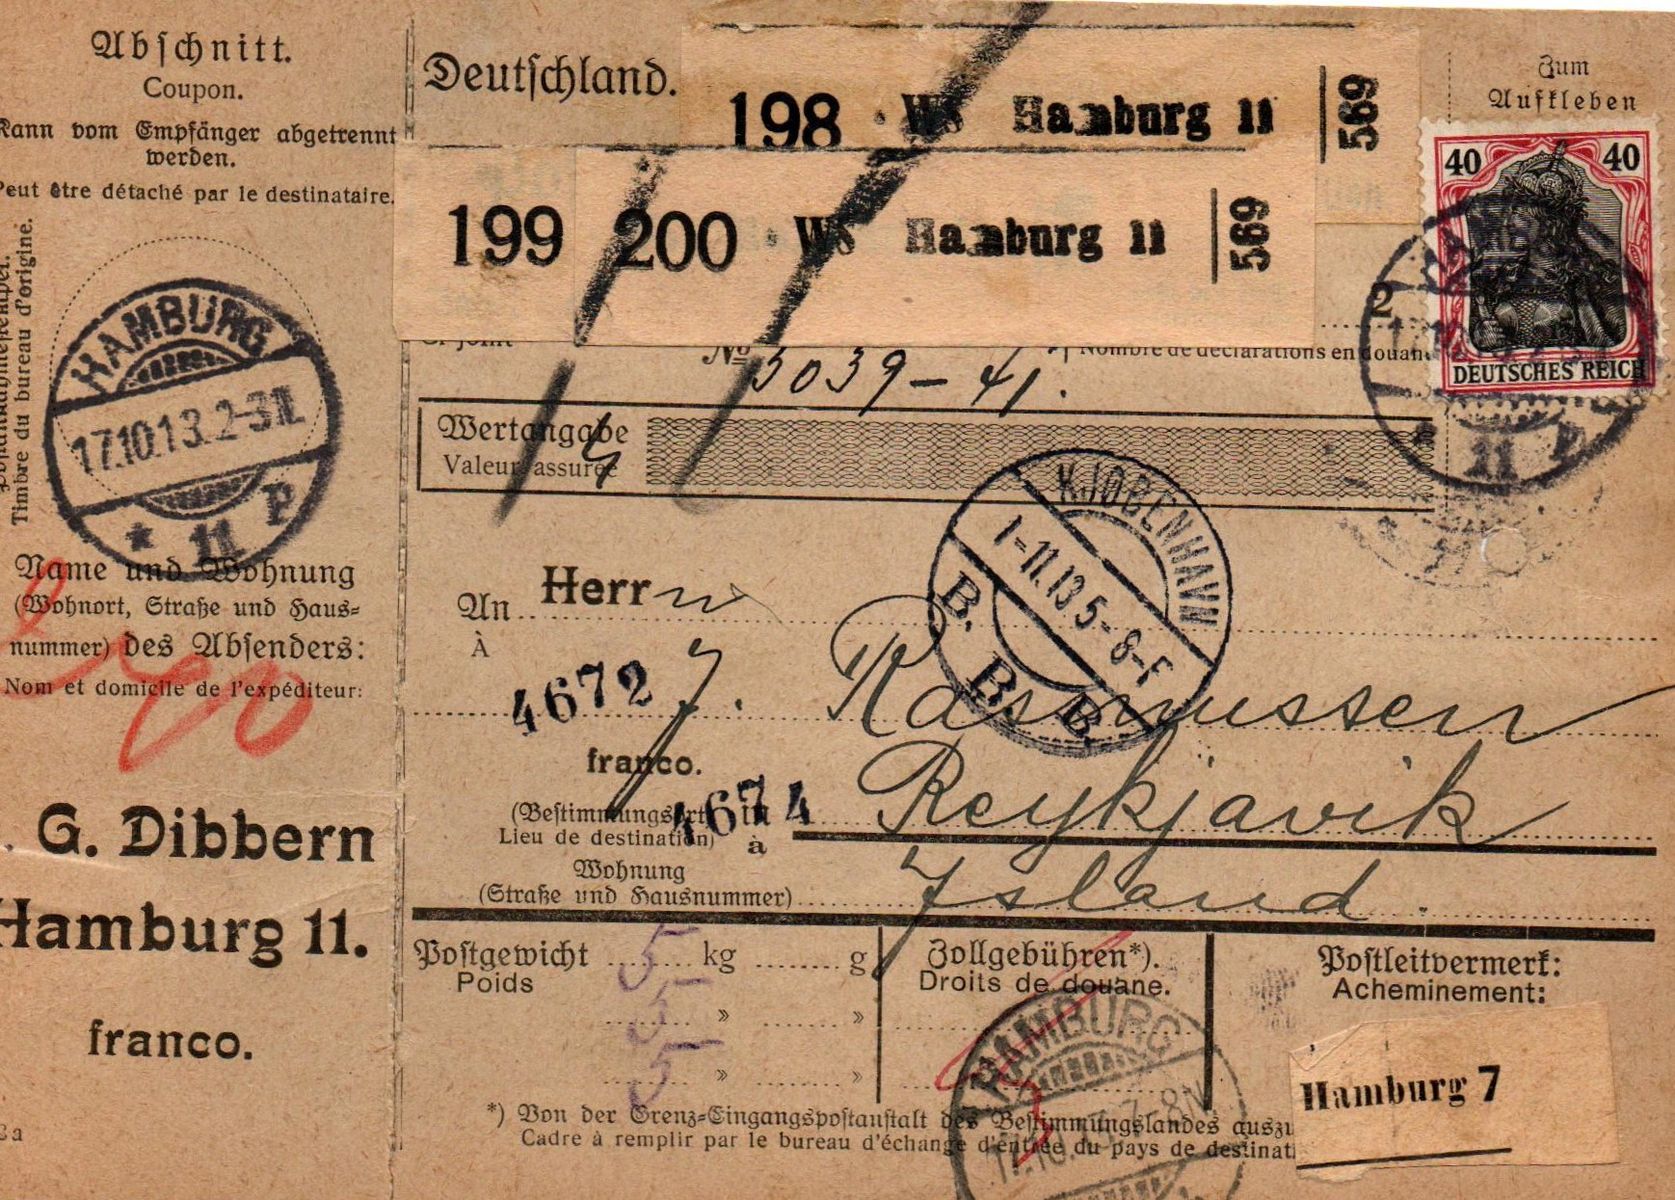 Abschnitt.
Coupon.
Kann vom Empfänger abgetrennt
werden.
Peut être détaché par le destinataire.
Timbre du bureau d'origine.
HAMBURG
17.10.13.2-3N.
* 11 P
Name und Wohnung
(Wohnort, Straße und Haus-
nummer) des Absenders:
Nom et domicile de l'expéditeur:
G. Dibbern
Hamburg 11.
franco.
Deutschland.
198 Ws Hamburg 11 569
199 200 Ws Hamburg 11 569
Zum
Aufkleben
40 40
DEUTSCHES REICH
11 P
2
No 3039-41.
Nombre de déclarations en douane
Wertangabe
Valeur assurée
KJØBENHAVN
1-11.13 5-8-F
B. B. B.
An Herrn
À
4672
J. Rasmussen
franco.
4674
(Bestimmungsort) in Reykjavik
Lieu de destination) à
Wohnung
(Straße und Hausnummer) Island.
Postgewicht 5 kg g
Poids
5 » »
5 » »
Zollgebühren*).
Droits de douane.
Postleitvermerk:
Acheminement:
HAMBURG
Hamburg 7
*) Von der Grenz-Eingangspostanstalt des Bestimmungslandes
Cadre à remplir par le bureau d'échange d'entrée du pays de